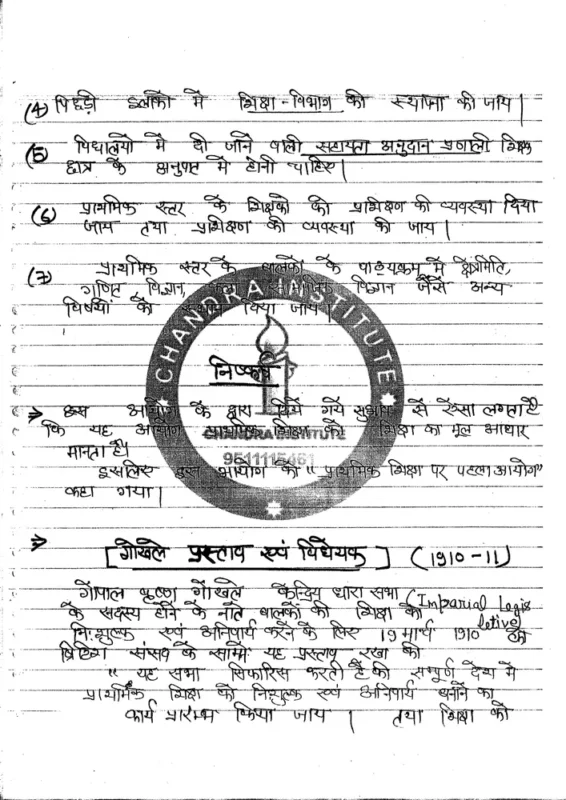 (4) पिछड़ी इलाकों में शिक्षा-विभाग की स्थापना की जाय।
(5) विद्यालयों में दी जाने वाली सहायता अनुदान प्रणाली शिक्षक
छात्र के अनुपात में होनी चाहिए।
(6) प्राथमिक स्तर के शिक्षकों की प्रशिक्षण की व्यवस्था दिया
जाय तथा प्रशिक्षण की व्यवस्था की जाय।
(7) प्राथमिक स्तर के बालकों के पाठ्यक्रम में क्षेत्रमिति,
गणित, विज्ञान, कला, सामाजिक विज्ञान जैसे अन्य
विषयों को स्थान दिया जाय।
CHANDRA INSTITUTE
निष्कर्ष
⇒ इस आयोग के द्वारा दिये गये सुझाव से ऐसा लगता है
कि यह आयोग प्राथमिक शिक्षा को शिक्षा का मूल आधार
CHANDRA INSTITUTE
मानता है।
9511115461
इसलिए इस आयोग को "प्राथमिक शिक्षा पर पहला आयोग"
कहा गया।
⇒ [गोखले प्रस्ताव एवं विधेयक] (1910-11)
गोपाल कृष्ण गोखले केन्द्रिय धारा सभा (Imparial Legis
के सदस्य होने के नाते बालकों की शिक्षा को letive)
निःशुल्क एवं अनिवार्य करने के लिए 19 मार्च 1910 को
ब्रिटिश संसद के सामने यह प्रस्ताव रखा की
" यह सभा सिफारिस करती है की सम्पूर्ण देश में
प्राथमिक शिक्षा को निःशुल्क एवं अनिवार्य बनाने का
कार्य प्रारम्भ किया जाय। तथा शिक्षा को